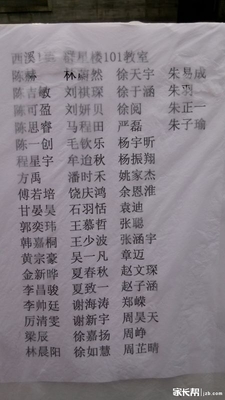 西溪 星楼101教室
陈 林 然 徐天宇 朱易成
陈吉敏 刘祺琛 徐于涵 朱羽
陈可盈 刘妍贝 徐阅 朱正一
陈思睿 马程田 严磊 朱子瑜
陈一创 毛钦乐 杨宇昕
程星宇 牟迨秋 杨振翔
方禹 潘时禾 姚家杰
傅若培 饶庆鸿 余恩淮
甘晏昊 石羽恬 袁迪
郭奕玮 王慕哲 张聪
韩嘉桐 王少波 张涵宇
黄宗豪 吴一凡 章迈
金新晔 夏春秋 赵文琛
李昌骏 夏致一 赵子涵
李帅廷 谢海涛 郑嵘
厉清雯 谢新宇 周昊天
梁辰 徐嘉扬 周峥
林晨阳 徐如慧 周芷晴
家长帮 jzb.com